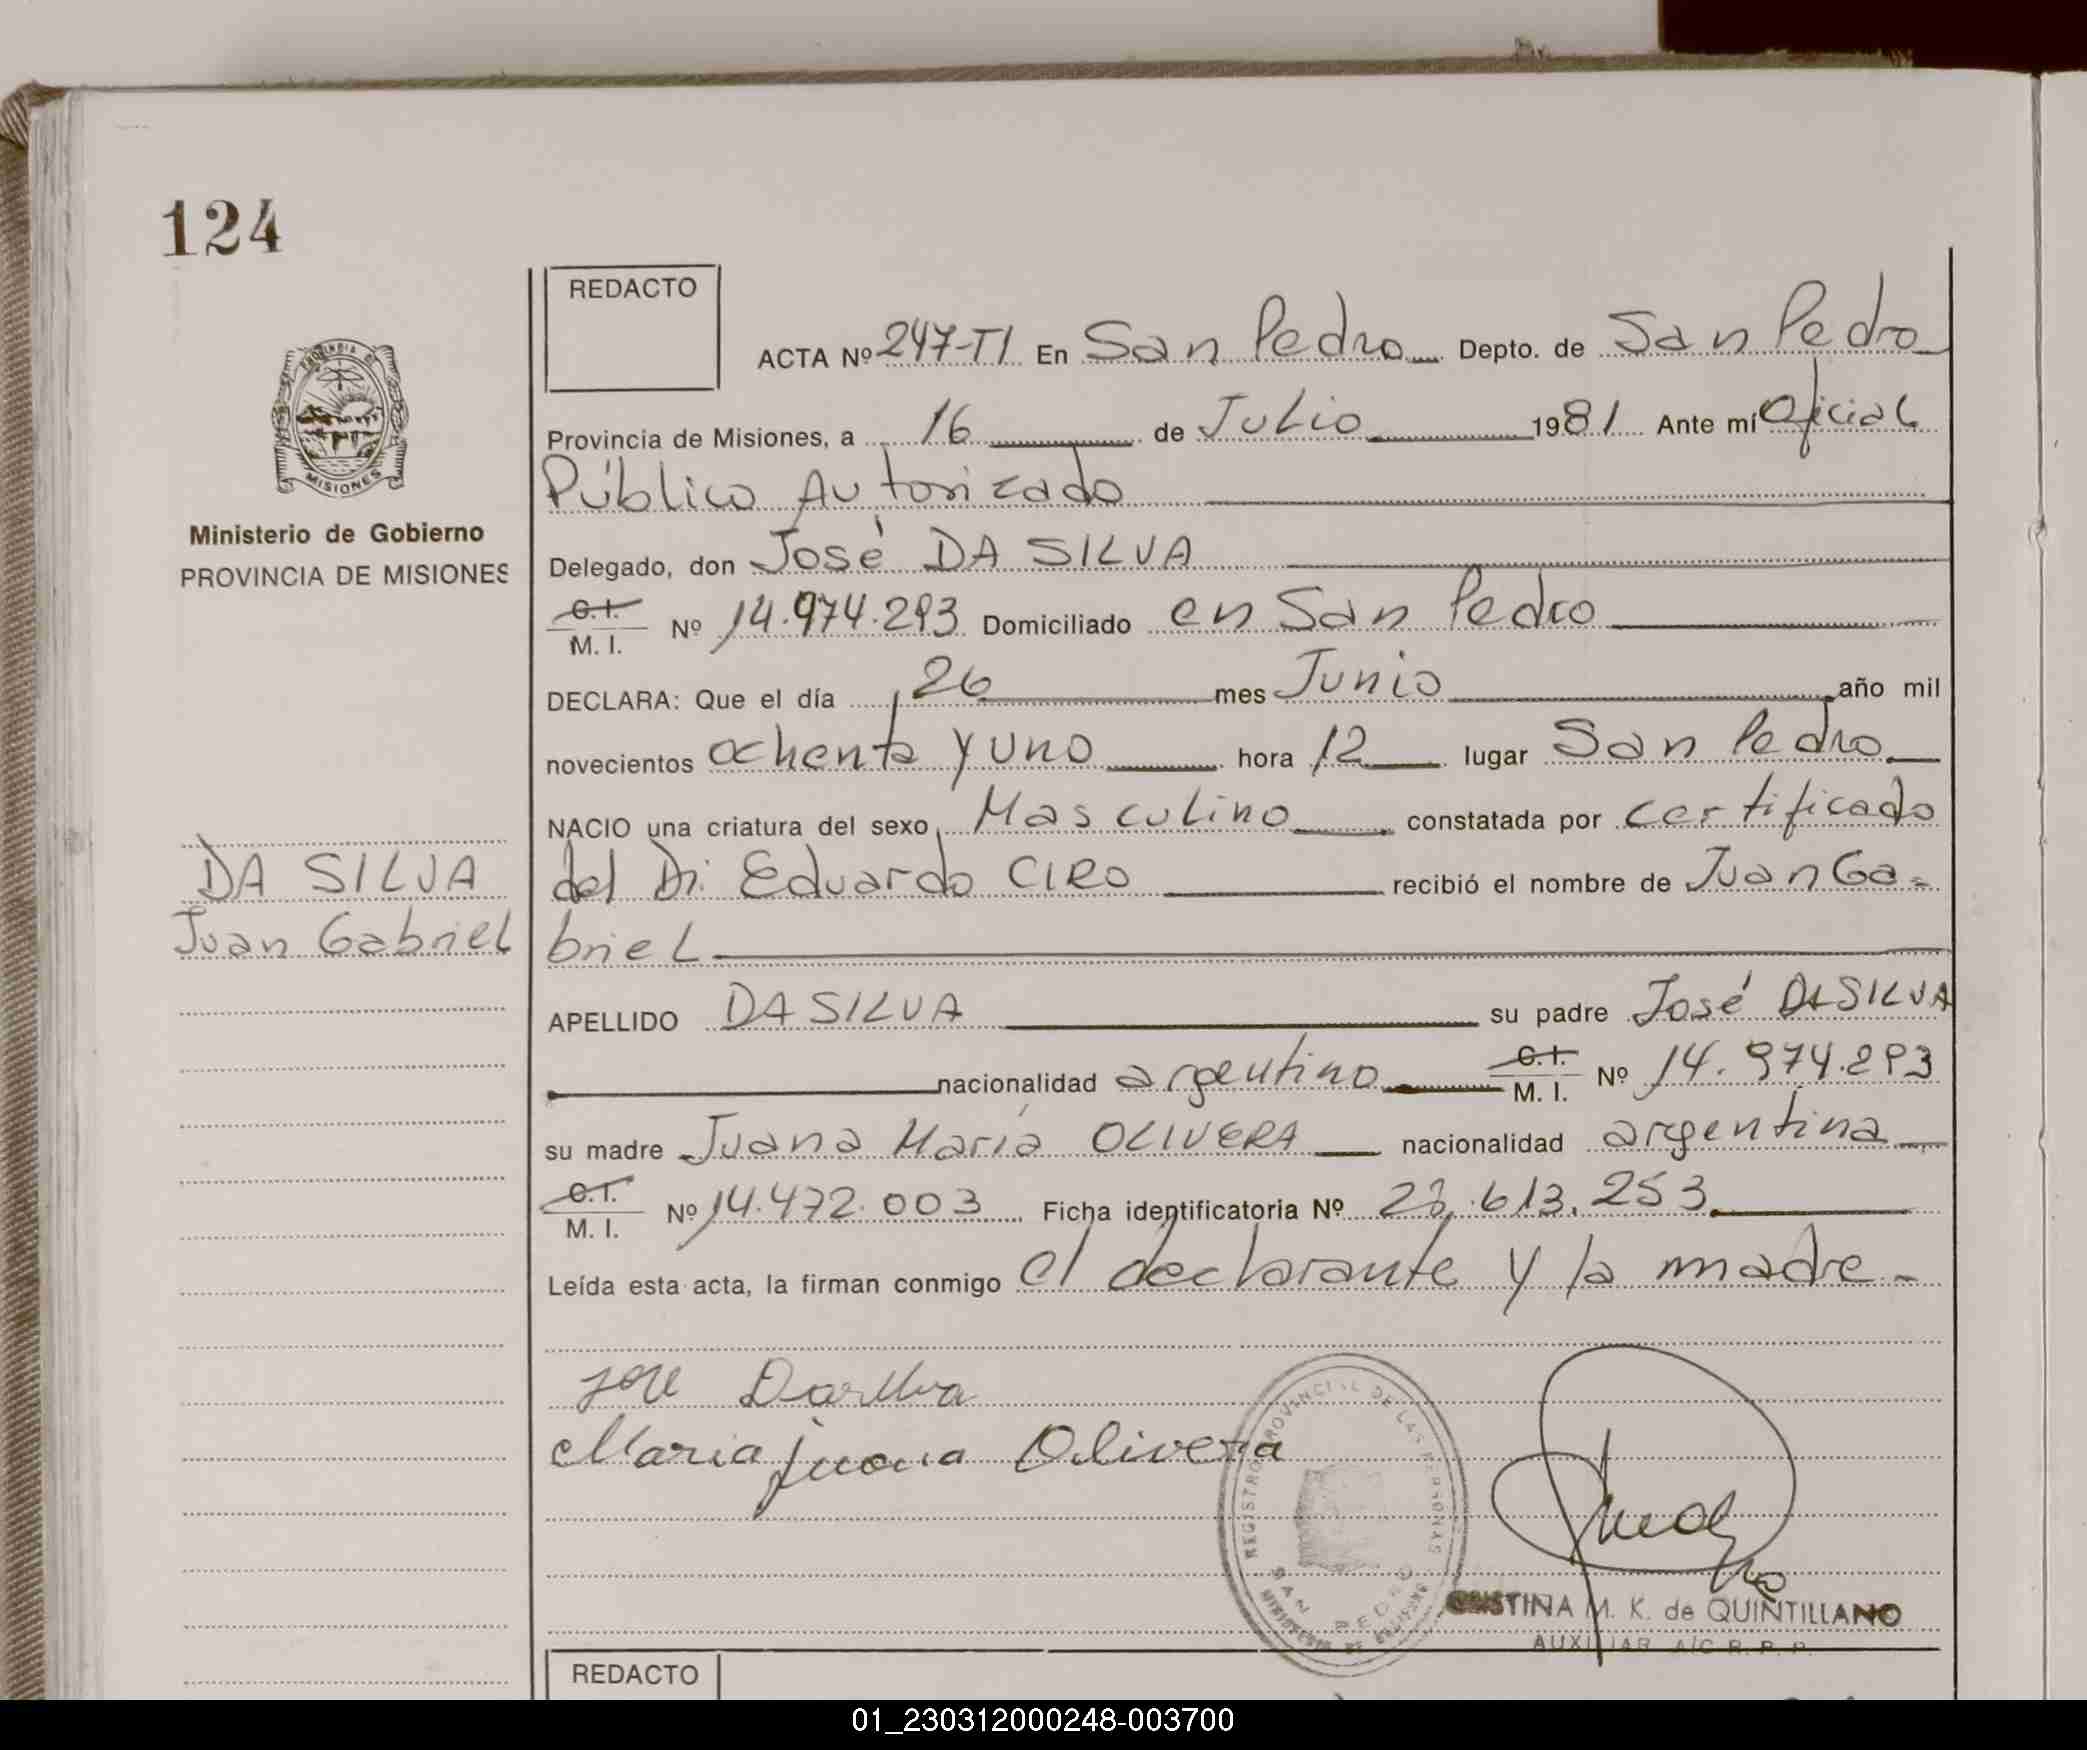 124
REDACTO
ACTA Nº 247-TI En San Pedro Depto. de San Pedro
Provincia de Misiones, a 16 de Julio 1981 Ante mí Oficial
Público Autorizado
Ministerio de Gobierno
PROVINCIA DE MISIONES
Delegado, don José DA SILVA
C.I.
M. I. Nº 14.974.293 Domiciliado en San Pedro
DECLARA: Que el día 26 mes Junio año mil
novecientos ochenta y uno hora 12 lugar San Pedro
NACIO una criatura del sexo Masculino constatada por certificado
DA SILVA
del Dr. Eduardo CIRO recibió el nombre de Juan Ga-
Juan Gabriel
briel
APELLIDO DA SILVA su padre José DA SILVA
nacionalidad argentino C.I.
M. I. Nº 14.974.293
su madre Juana María OLIVERA nacionalidad argentina
C.I.
M. I. Nº 14.472.003 Ficha identificatoria Nº 28.613.253
Leída esta acta, la firman conmigo el declarante y la madre.
José Dasilva
Maria juana Olivera
REGISTRO PROVINCIAL DE LAS PERSONAS
SAN PEDRO
MINISTERIO DE GOBIERNO
CRISTINA M. K. de QUINTILLANO
AUXILIAR A/C R. P. P.
REDACTO
01_230312000248-003700